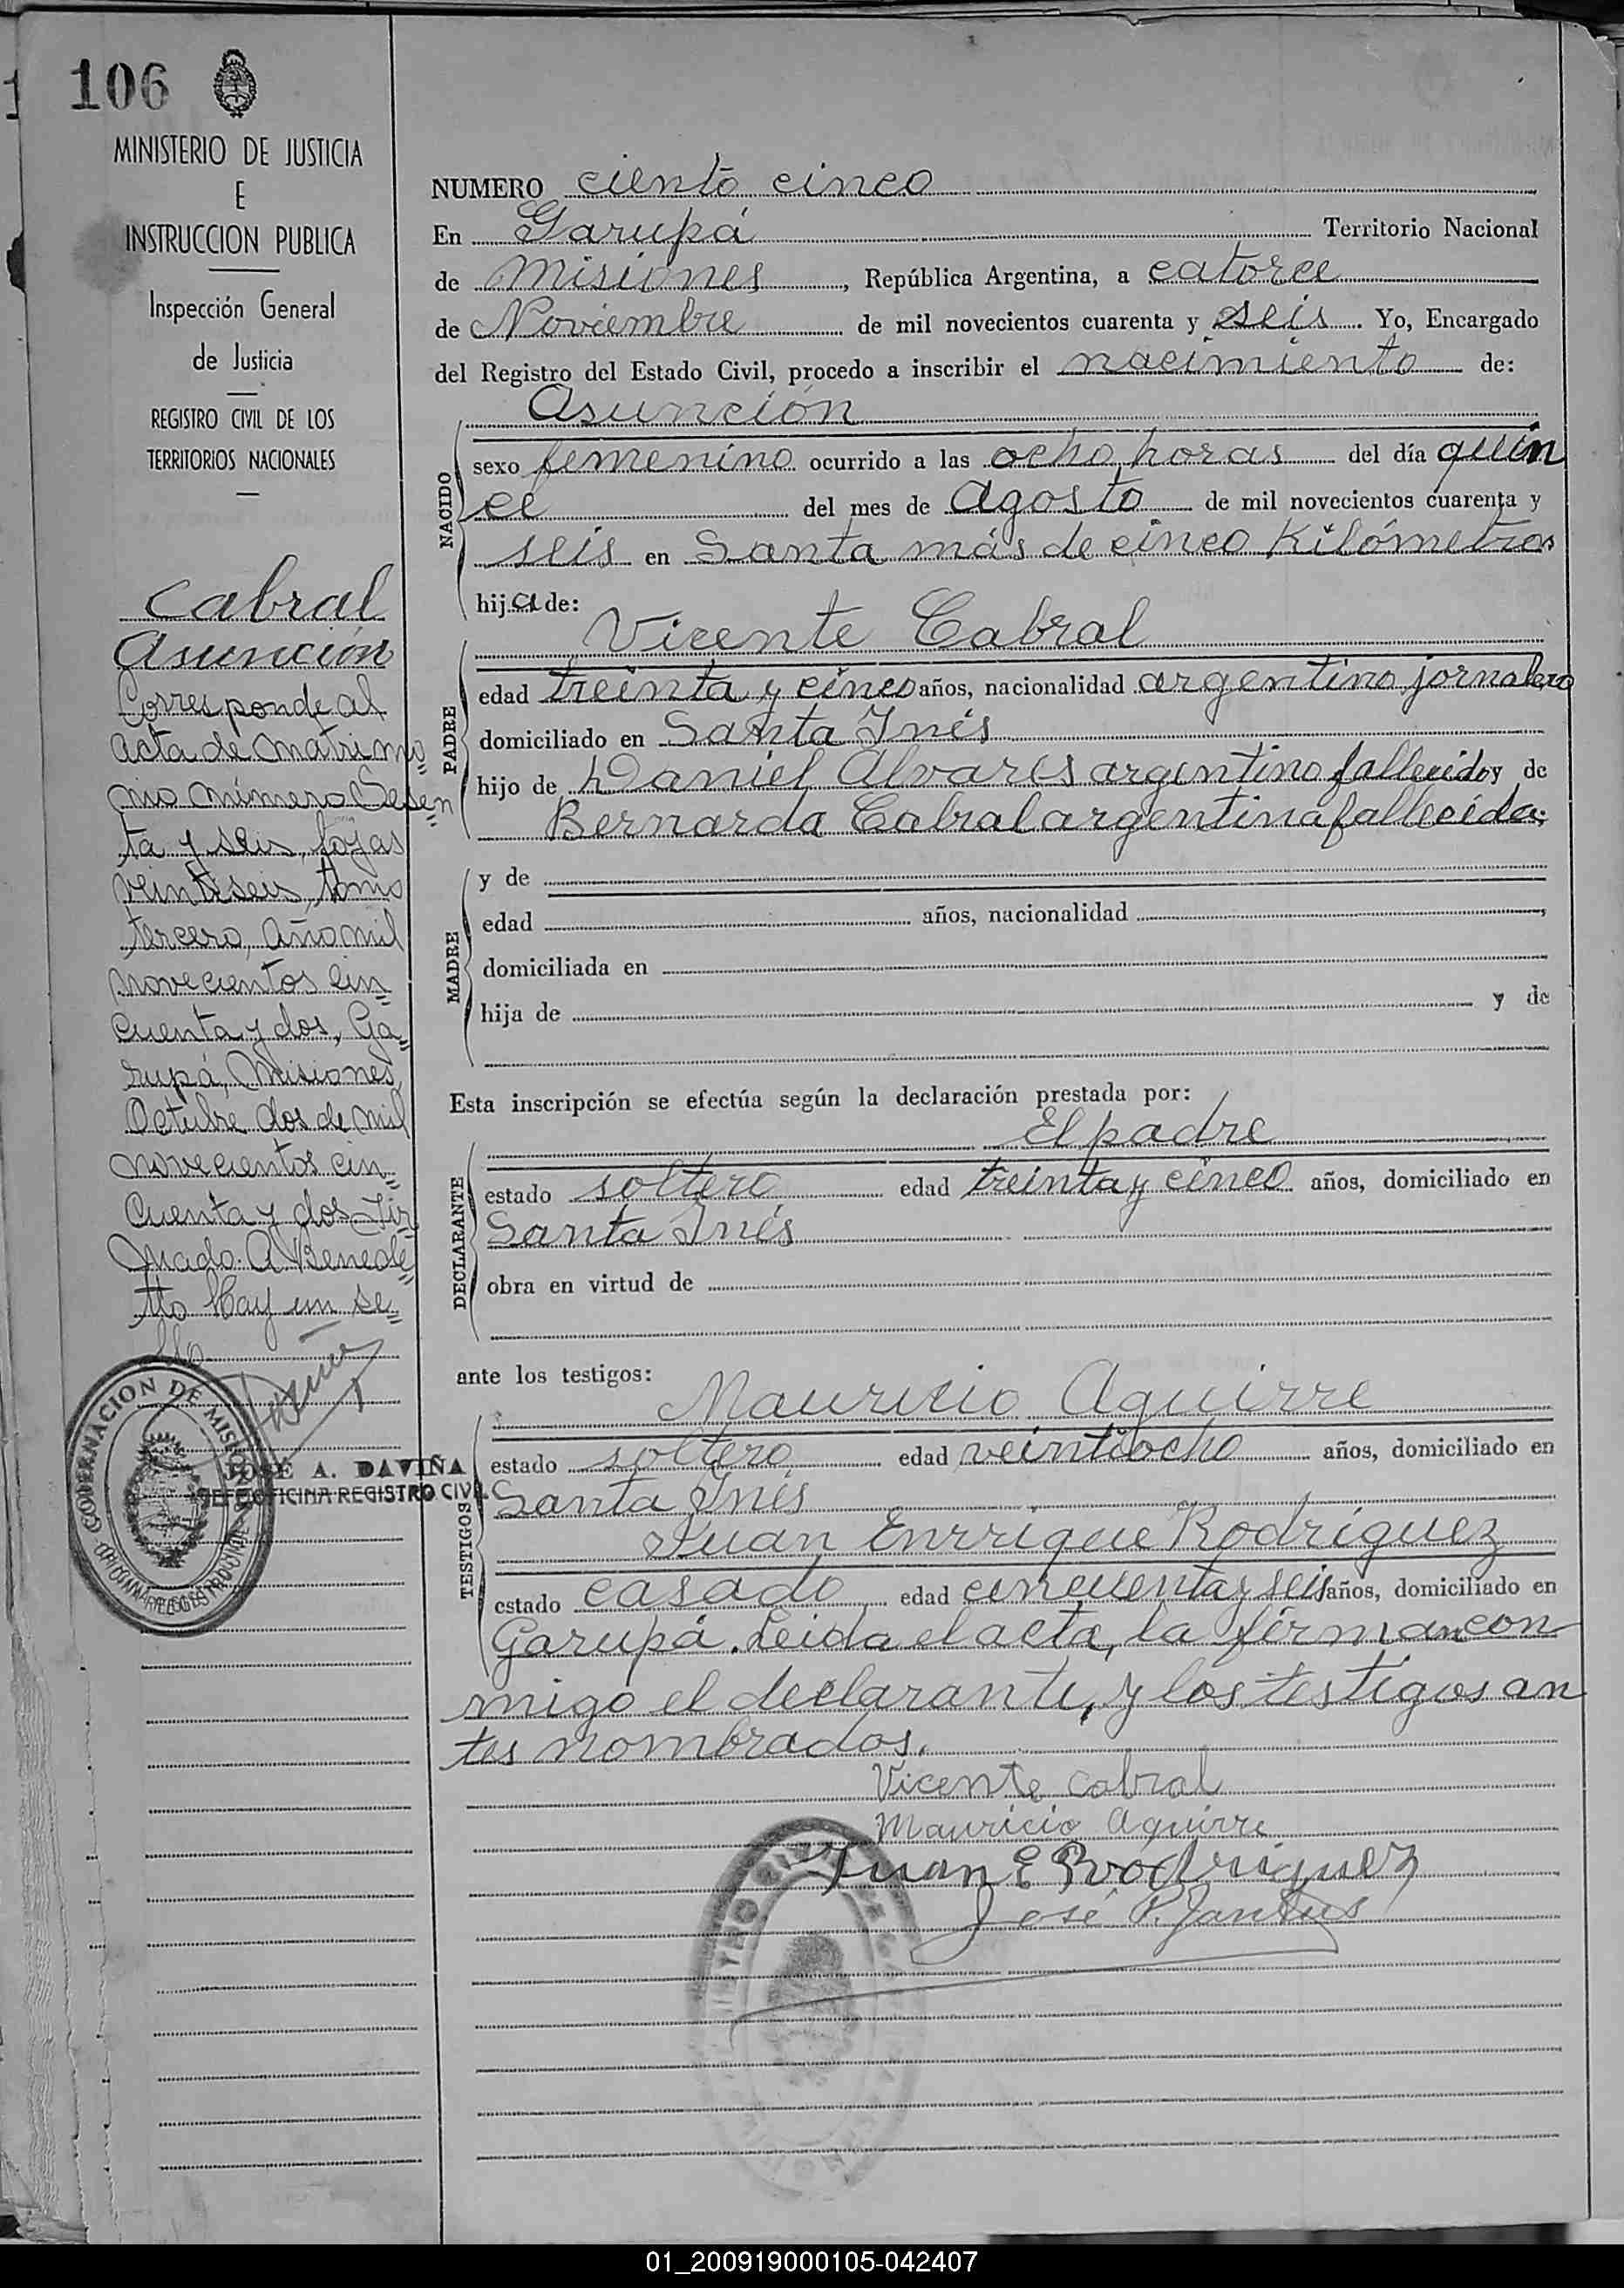 106
MINISTERIO DE JUSTICIA
E
INSTRUCCION PUBLICA
Inspección General
de Justicia
REGISTRO CIVIL DE LOS
TERRITORIOS NACIONALES
Cabral
Asunción
Corresponde al
acta de matrimo
nio número Sesen
ta y seis, fojas
veintiseis, tomo
tercero, año mil
novecientos cin
cuenta y dos, Ga
rupá, Misiones,
Octubre dos de mil
novecientos cin
cuenta y dos Fir
mado. A Benede
tto Hay un se
llo
GOBERNACION DE MISIONES
JOSÉ A. DAVIÑA
JEFE OFICINA REGISTRO CIVIL
NUMERO ciento cinco
En Garupá Territorio Nacional
de Misiones, República Argentina, a catorce
de Noviembre de mil novecientos cuarenta y seis. Yo, Encargado
del Registro del Estado Civil, procedo a inscribir el nacimiento de:
Asunción
NACIDO
sexo femenino ocurrido a las ocho horas del día quin
ce del mes de Agosto de mil novecientos cuarenta y
seis en Santa más de cinco Kilómetros
hija de:
Vicente Cabral
PADRE
edad treinta y cinco años, nacionalidad argentino jornalero
domiciliado en Santa Inés
hijo de Daniel Alvares argentino fallecido y de
Bernarda Cabral argentina fallecida.
MADRE
y de
edad años, nacionalidad
domiciliada en
hija de y de
Esta inscripción se efectúa según la declaración prestada por:
El padre
DECLARANTE
estado soltero edad treinta y cinco años, domiciliado en
Santa Inés
obra en virtud de
ante los testigos:
Mauricio Aguirre
TESTIGOS
estado soltero edad veintiocho años, domiciliado en
Santa Inés
Juan Enrrique Rodriguez
estado casado edad cincuenta y seis años, domiciliado en
Garupá. Leida el acta, la firman con
migo el declarante, y los testigos an
tes nombrados.
Vicente Cabral
Mauricio Aguirre
Juan E Rodriguez
José P. Jantus
01_200919000105-042407